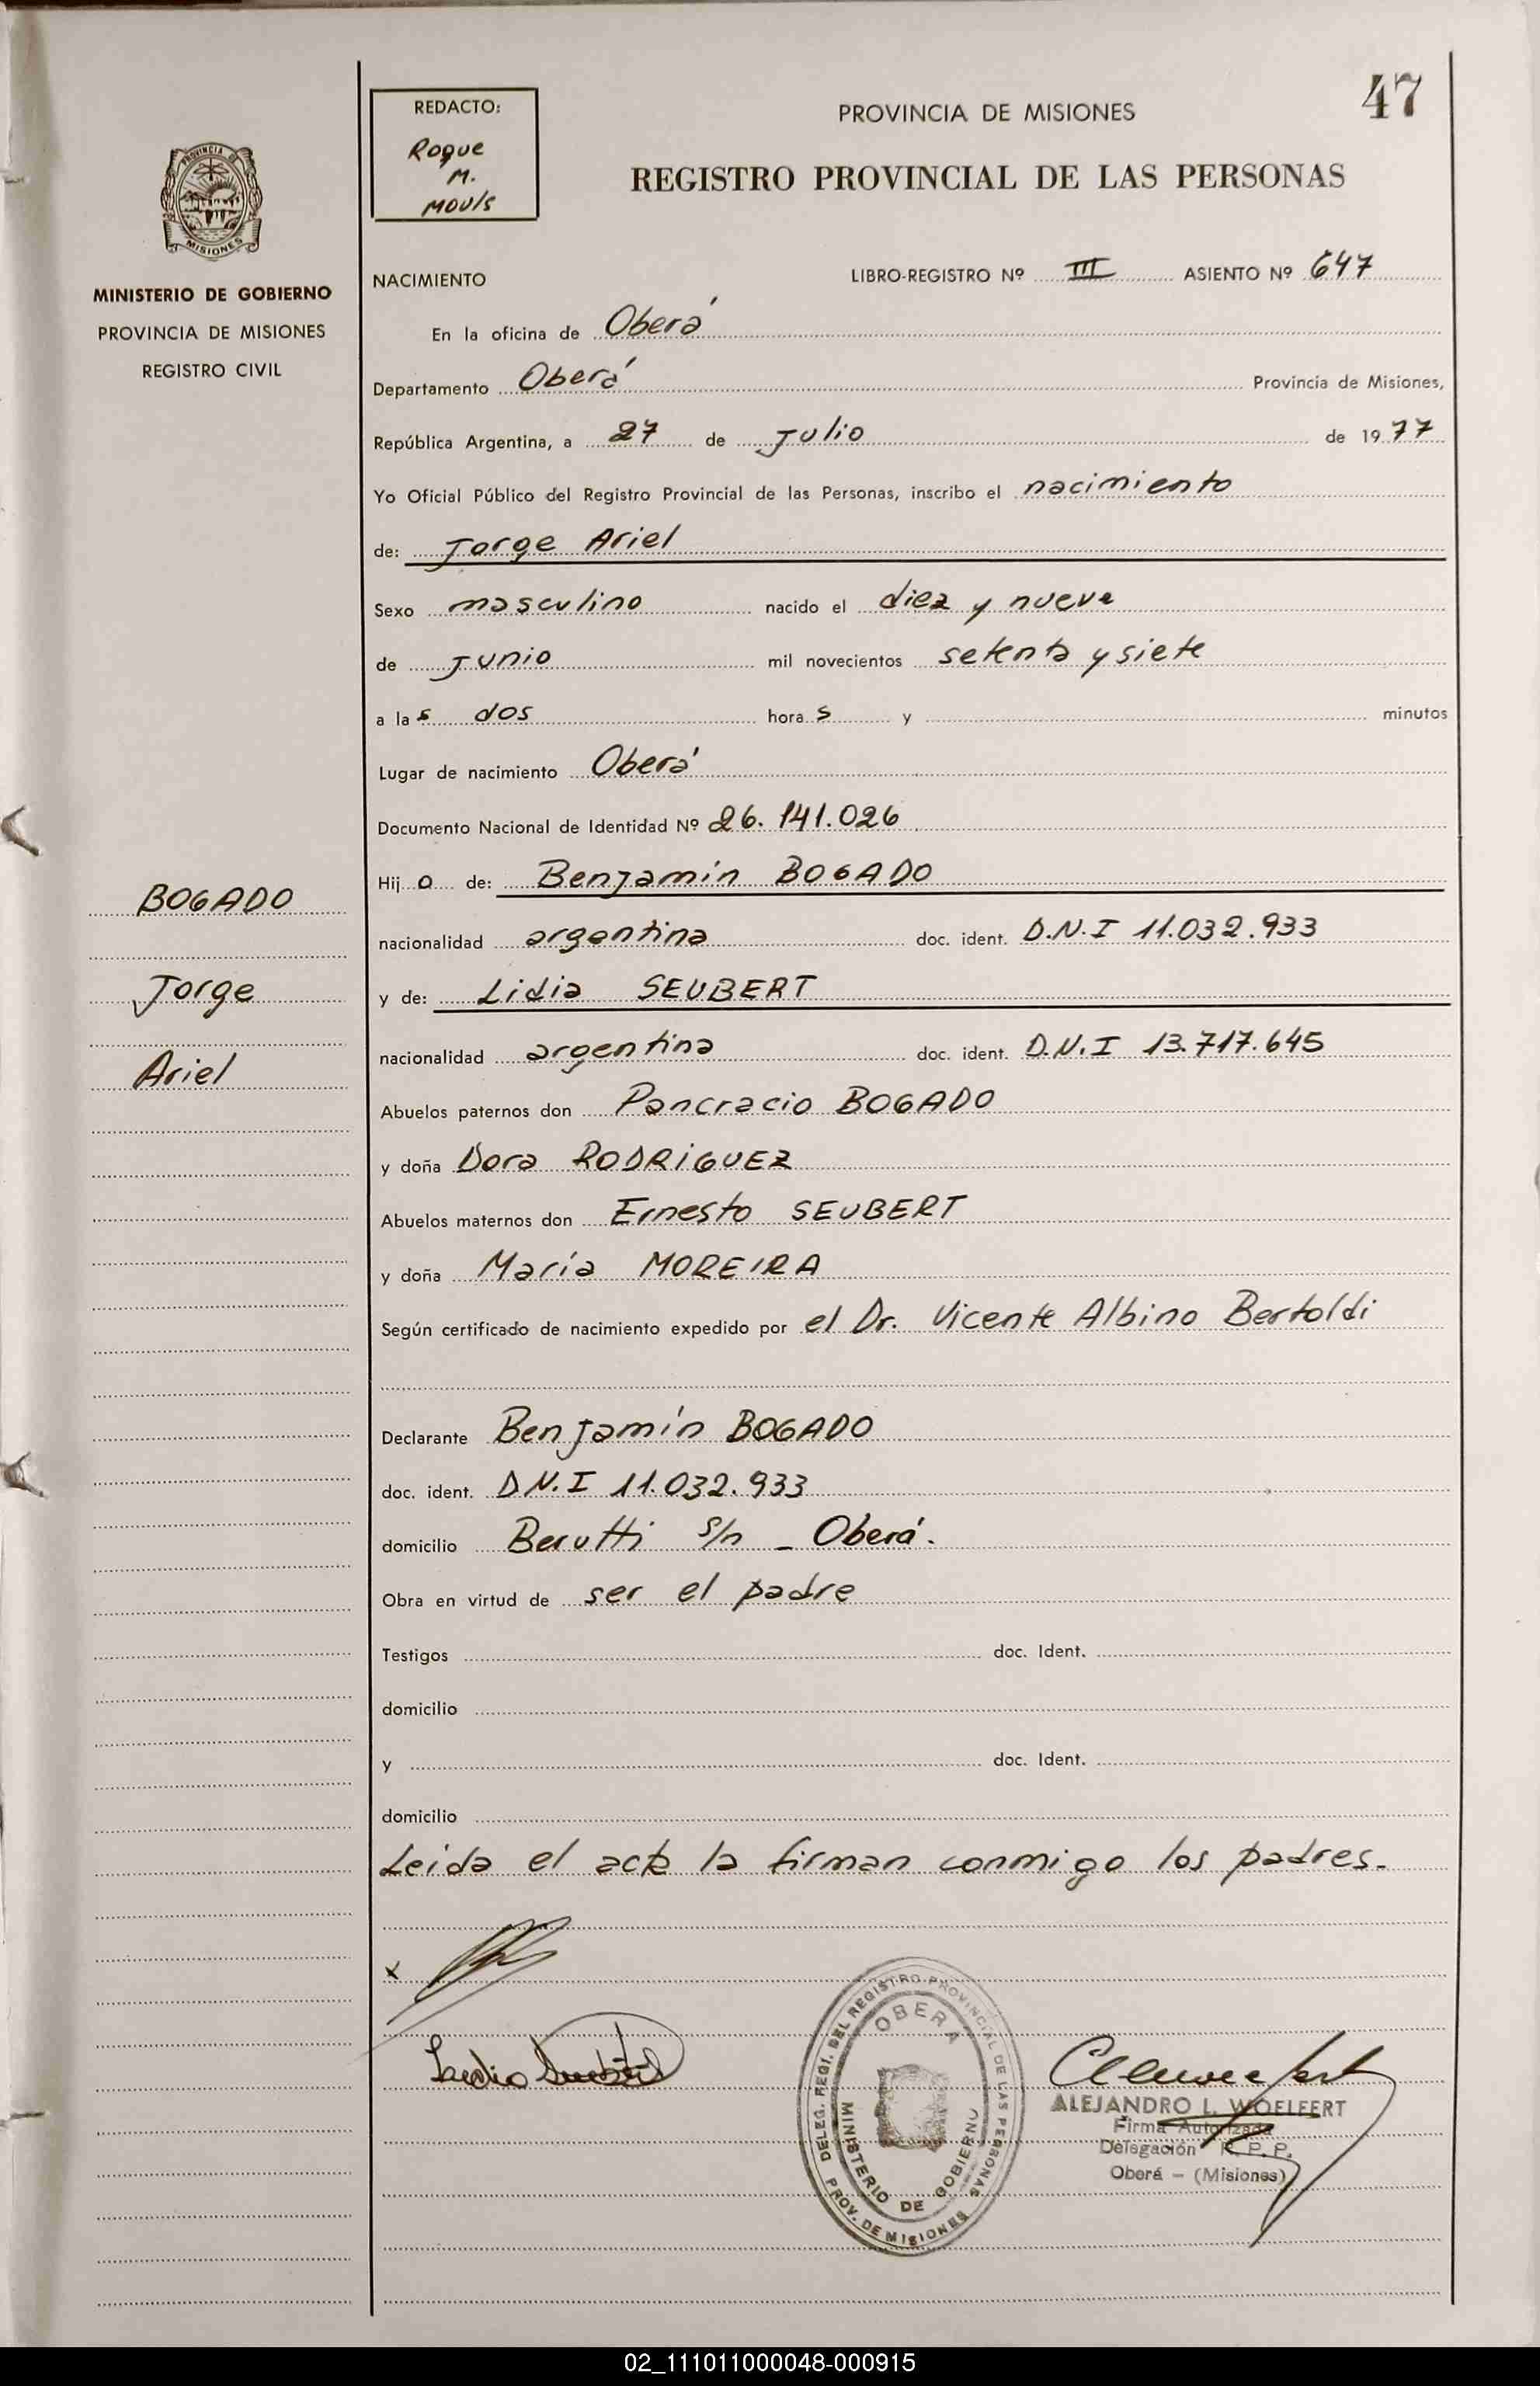 47
REDACTO:
Roque
M.
Mouls
PROVINCIA DE MISIONES
REGISTRO PROVINCIAL DE LAS PERSONAS
PROVINCIA DE
MISIONES
MINISTERIO DE GOBIERNO
PROVINCIA DE MISIONES
REGISTRO CIVIL
NACIMIENTO LIBRO-REGISTRO Nº III ASIENTO Nº 647
En la oficina de Oberá
Departamento Oberá Provincia de Misiones,
República Argentina, a 27 de Julio de 1977
Yo Oficial Público del Registro Provincial de las Personas, inscribo el nacimiento
de: Jorge Ariel
Sexo masculino nacido el diez y nueve
de Junio mil novecientos setenta y siete
a las dos horas y minutos
Lugar de nacimiento Oberá
Documento Nacional de Identidad Nº 26.141.026
Hijo de: Benjamín BOGADO
nacionalidad argentina doc. ident. D.N.I 11.032.933
y de: Lidia SEUBERT
nacionalidad argentina doc. ident. D.N.I 13.717.645
Abuelos paternos don Pancracio BOGADO
y doña Dora RODRIGUEZ
Abuelos maternos don Ernesto SEUBERT
y doña María MOREIRA
Según certificado de nacimiento expedido por el Dr. Vicente Albino Bertoldi
Declarante Benjamín BOGADO
doc. ident. D.N.I 11.032.933
domicilio Berutti s/n - Oberá.
Obra en virtud de ser el padre
Testigos doc. Ident.
domicilio
y doc. Ident.
domicilio
Leida el acta la firman conmigo los padres.
BOGADO
Jorge
Ariel
x
DELEG. REGI. DEL REGISTRO PROVINCIAL DE LAS PERSONAS
PROV. DE MISIONES
OBERA
MINISTERIO DE GOBIERNO
ALEJANDRO L. WOELFERT
Firma Autorizada
Delegación R. P. P.
Oberá - (Misiones)
02_111011000048-000915